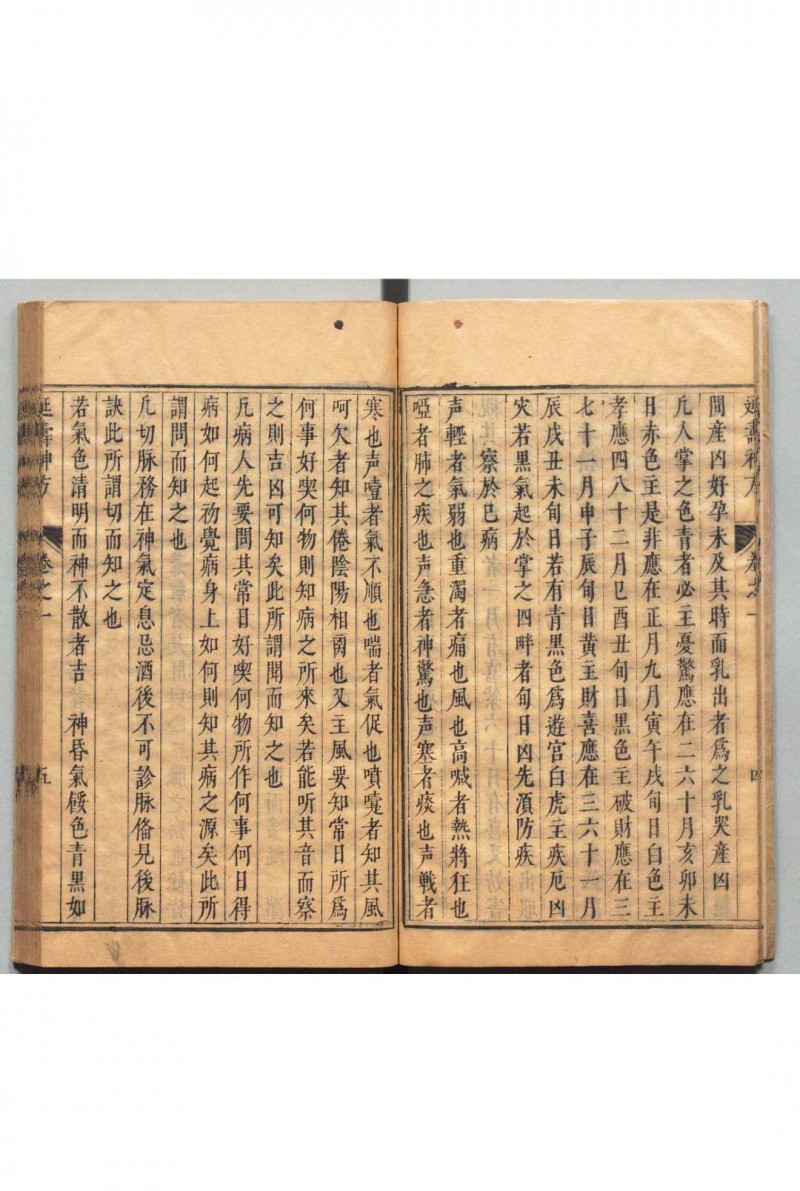 延壽神方 卷之一 四
間産凶好孕未及其時而乳出者爲之乳哭産凶
凢人掌之色青者必主憂驚應在二六十月亥卯未
日赤色主是非應在正月九月寅午戌旬日白色主
孝應四八十二月巳酉丑旬日黒色主破財應在三
七十一月申子辰旬日黄主財喜應在三六十一月
辰戌丑未旬日若有青黒色爲遊宫白虎主疾厄凶
灾若黒氣起於掌之四畔者旬日凶先湏防疾
察於已病
声輕者氣弱也重濁者痛也風也高喊者熱將狂也
啞者肺之疾也声急者神驚也声塞者痰也声戦者
寒也声噎者氣不順也喘者氣促也噴嚔者知其風
呵欠者知其倦陰陽相啇也又主風要知常日所爲
何事好喫何物則知病之所來矣若能听其音而察
之則吉凶可知矣此所謂聞而知之也
凢病人先要問其常日好喫何物所作何事何日得
病如何起初覺病身上如何則知其病之源矣此所
謂問而知之也
凢切脉務在神氣定息忌酒後不可診脉俻見後脉
訣此所謂切而知之也
若氣色清明而神不散者吉 神昏氣餒色青黒如
延壽神方 卷之一 五